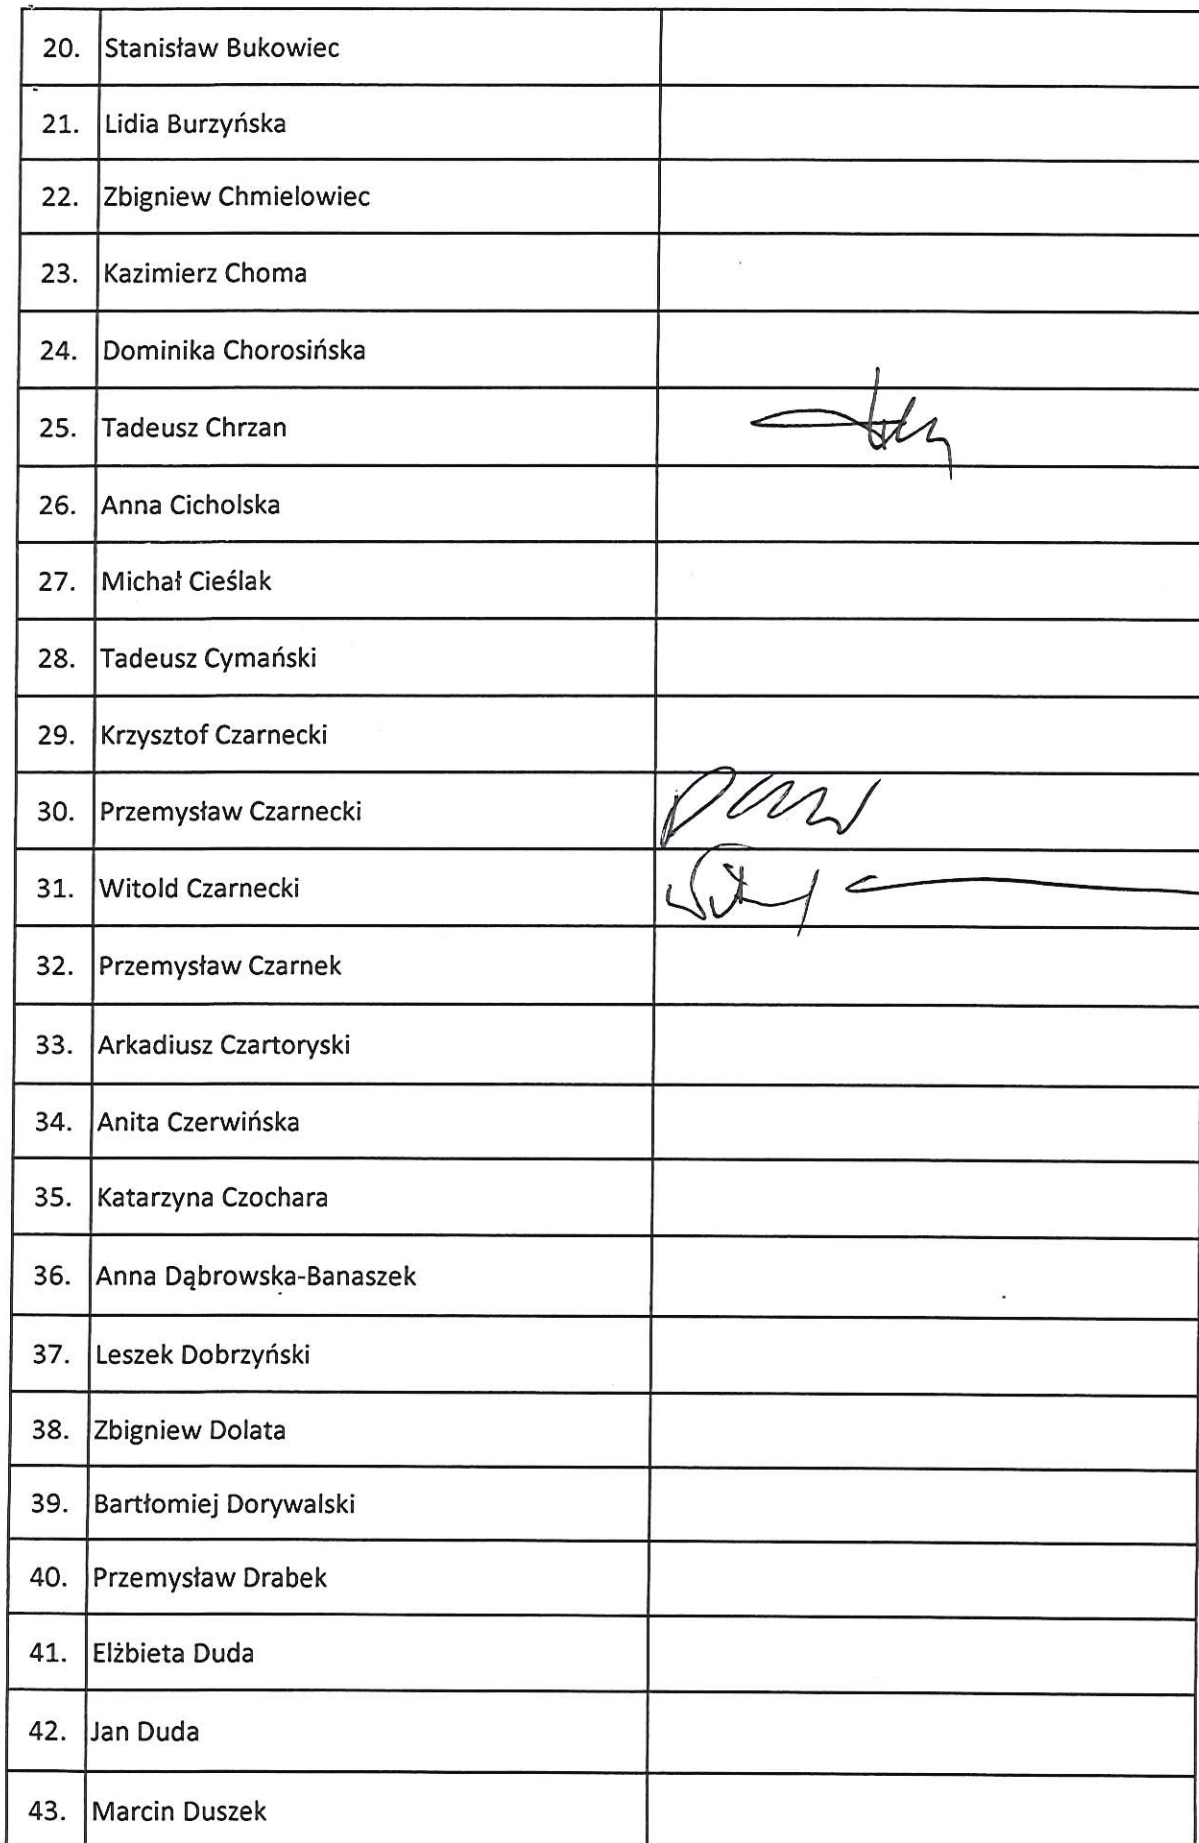 20. Stanisław Bukowiec
21. Lidia Burzyńska
22. Zbigniew Chmielowiec
23. Kazimierz Choma
24. Dominika Chorosińska
25. Tadeusz Chrzan
26. Anna Cicholska
27. Michał Cieślak
28. Tadeusz Cymański
29. Krzysztof Czarnecki
30. Przemysław Czarnecki
31. Witold Czarnecki
32. Przemysław Czarnek
33. Arkadiusz Czartoryski
34. Anita Czerwińska
35. Katarzyna Czochara
36. Anna Dąbrowska-Banaszek
37. Leszek Dobrzyński
38. Zbigniew Dolata
39. Bartłomiej Dorywalski
40. Przemysław Drabek
41. Elżbieta Duda
42. Jan Duda
43. Marcin Duszek